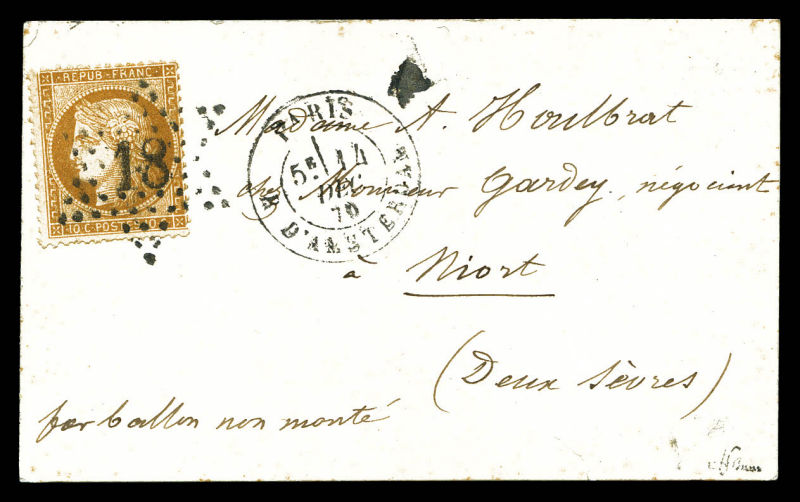 REPUB·FRANC·
18
10 C·POSTES·10
PARIS
5E 14
DEC.
70
R. D'AMSTERDAM
Madame A. Houlbrat
chez Monsieur Gardey, négociant
à Niort
(Deux Sèvres)
par ballon non monté